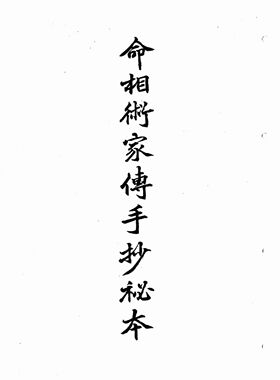 命相術家傳手抄秘本